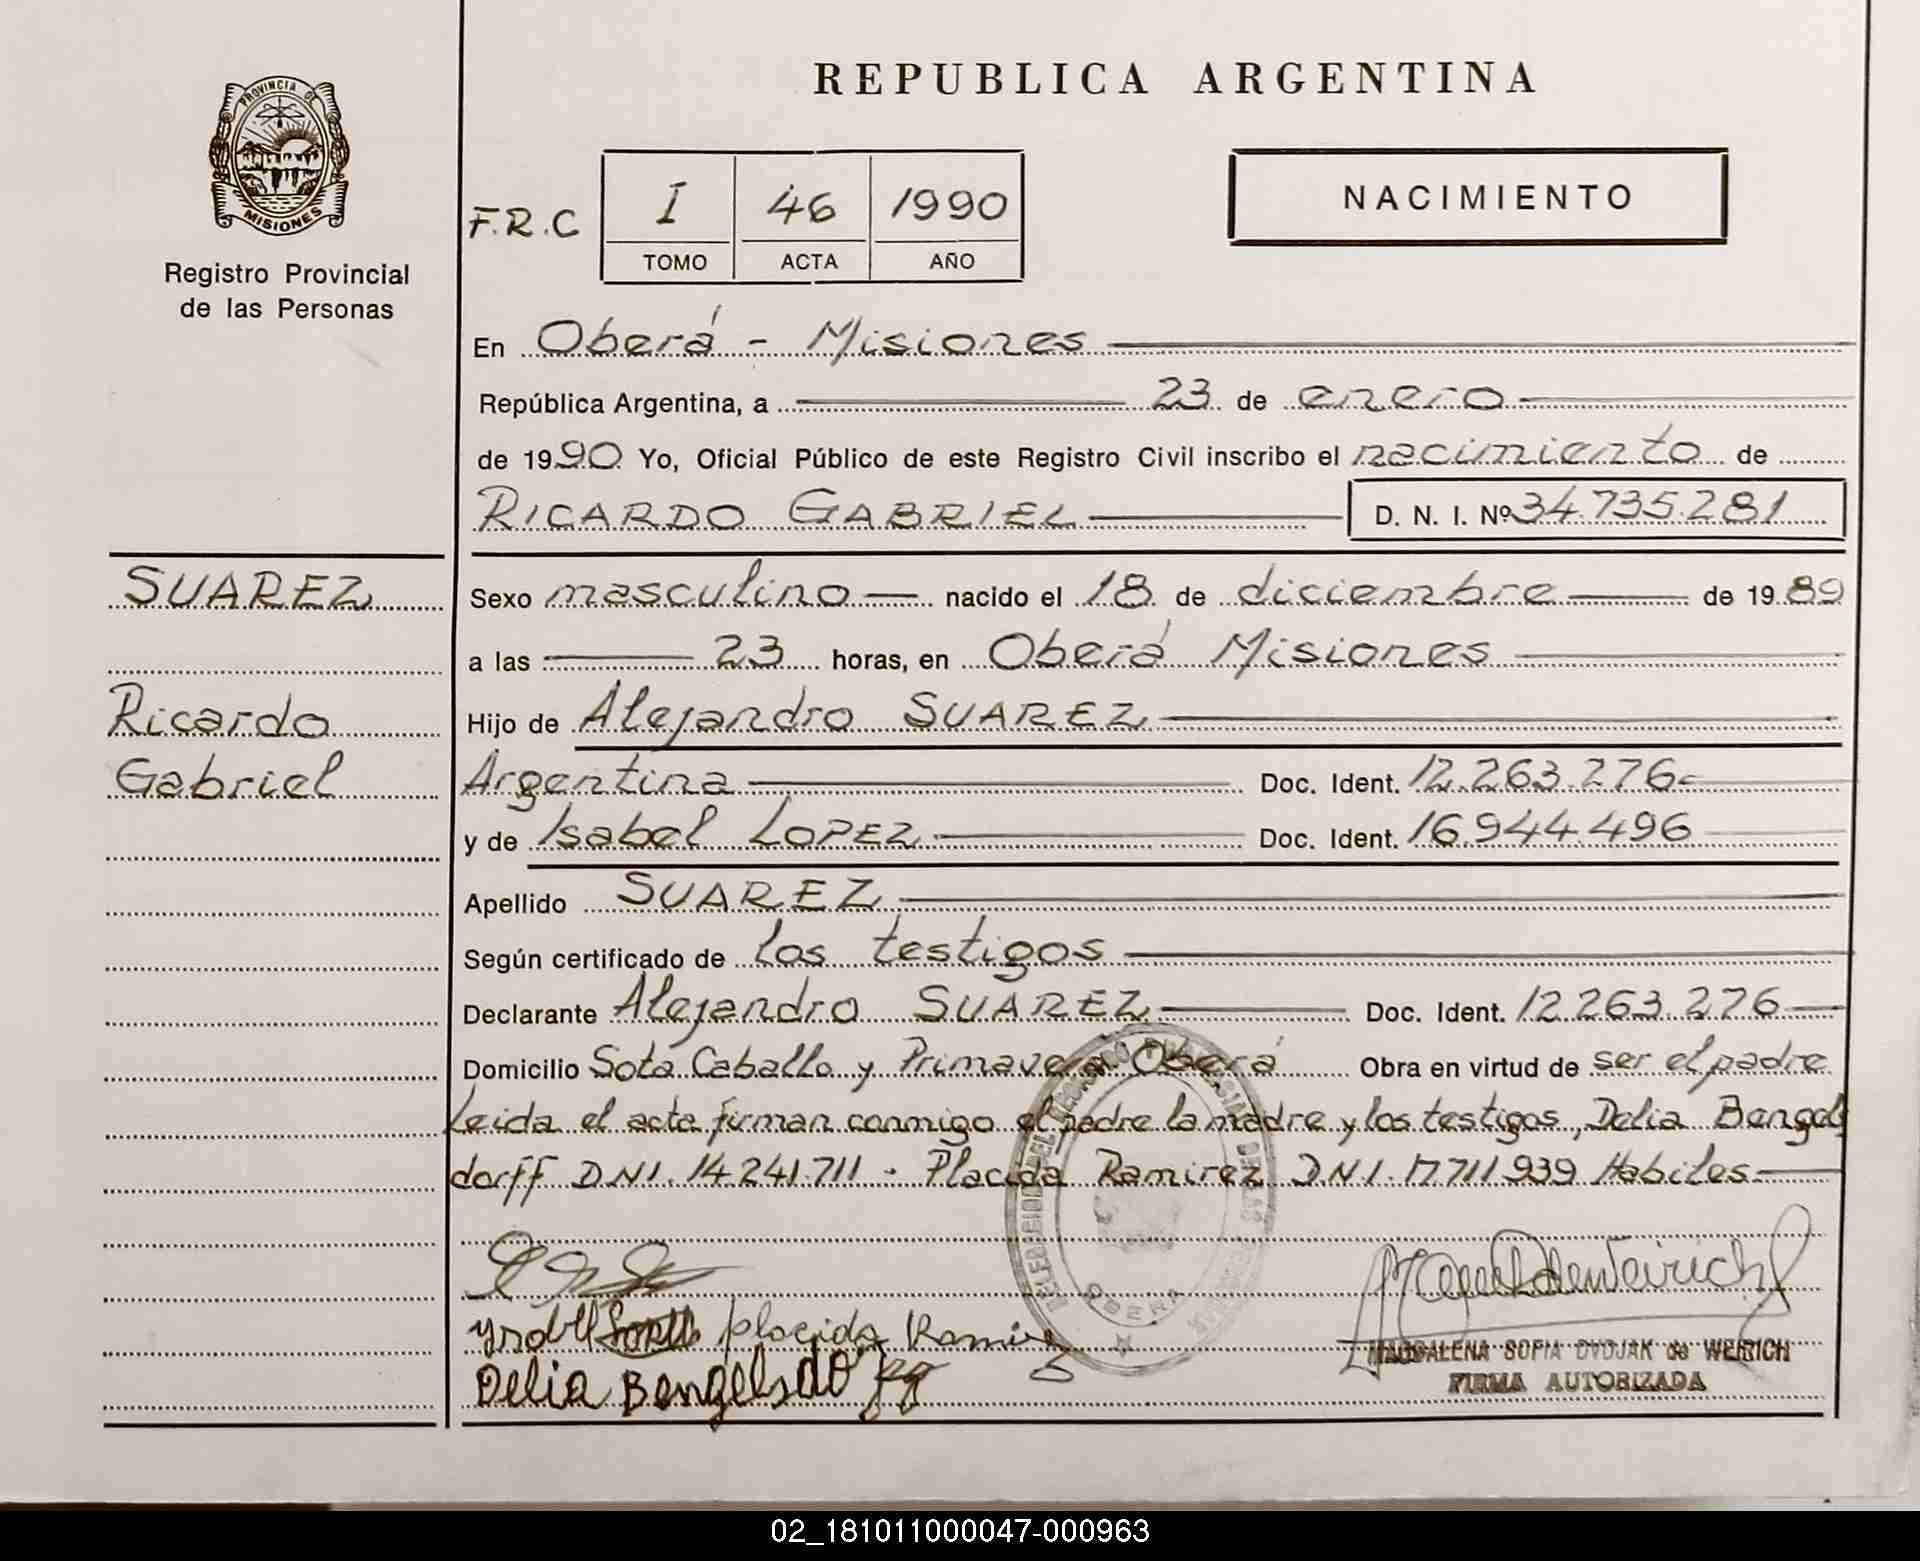 REPUBLICA ARGENTINA
PROVINCIA DE
MISIONES
Registro Provincial
de las Personas
F.R.C
I 46 1990
TOMO ACTA AÑO
NACIMIENTO
En Oberá - Misiones
República Argentina, a 23 de enero
de 1990 Yo, Oficial Público de este Registro Civil inscribo el nacimiento de
RICARDO GABRIEL D. N. I. Nº 34.735.281
SUAREZ
Ricardo
Gabriel
Sexo masculino nacido el 18 de diciembre de 1989
a las 23 horas, en Oberá Misiones
Hijo de Alejandro SUAREZ
Argentina Doc. Ident. 12.263.276
y de Isabel LOPEZ Doc. Ident. 16.944.496
Apellido SUAREZ
Según certificado de los testigos
Declarante Alejandro SUAREZ Doc. Ident. 12.263.276
Domicilio Sota Caballo y Primavera Oberá Obra en virtud de ser el padre
Leida el acta firman conmigo el padre la madre y los testigos, Delia Bengels
dorff DNI. 14.241.711 - Placida Ramirez DNI. 17711939 Habiles
placida Ramirez
Delia Bengelsdorff
OBERA
MAGDALENA SOFIA DVDJAK de WEIRICH
FIRMA AUTORIZADA
02_181011000047-000963